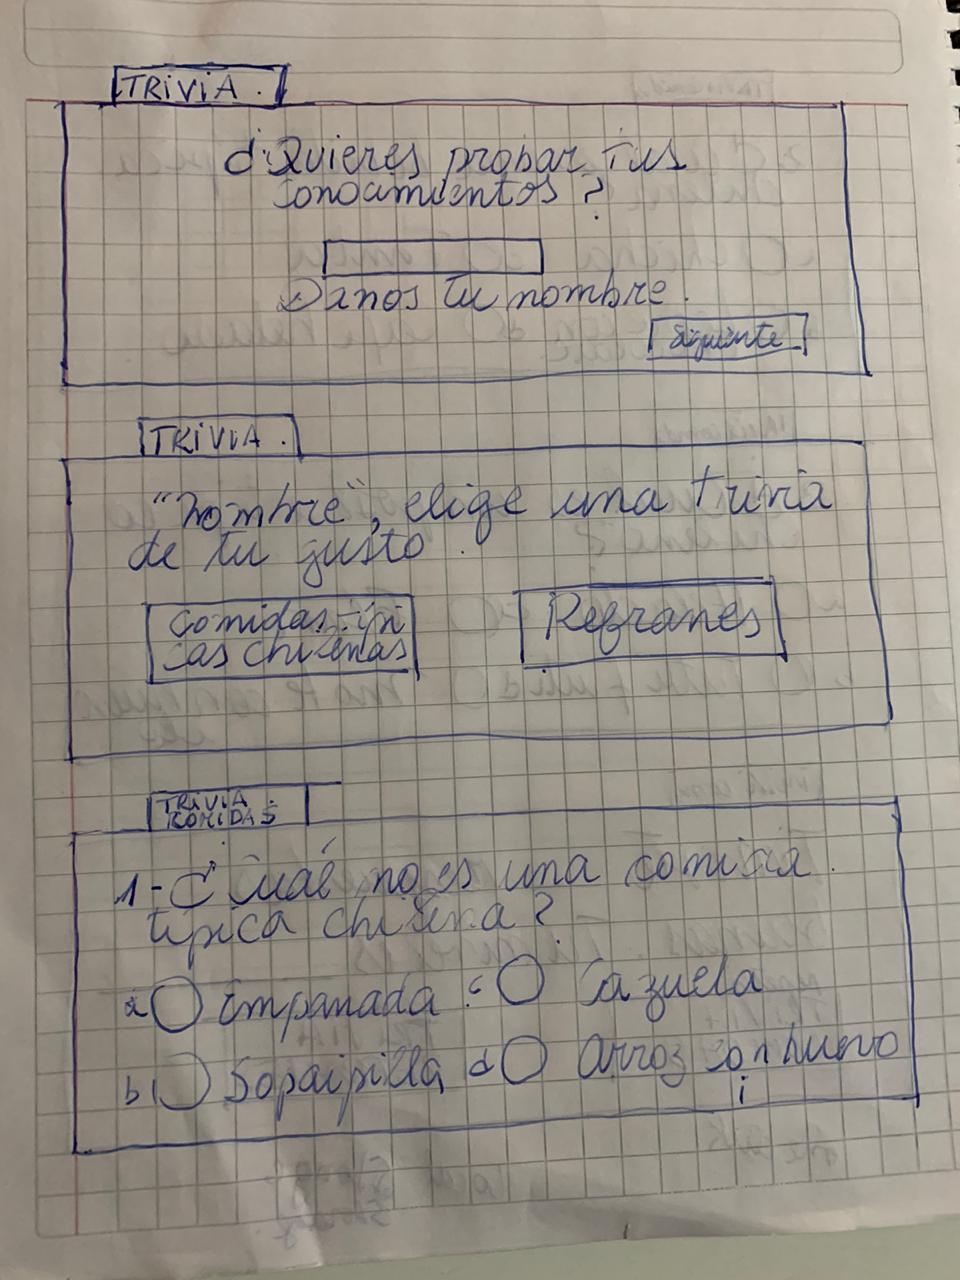 TRIVIA.
¿Quieres probar tus
conocimientos?
Danos tu nombre.
Siguiente
TRIVIA.
"nombre", elige una trivia
de tu gusto.
comidas típi
cas chilenas
Refranes
TRIVIA
COMIDAS
1- ¿Cuál no es una comida
típica chilena?
a Empanada c Cazuela
b Sopaipilla d Arroz con huevo